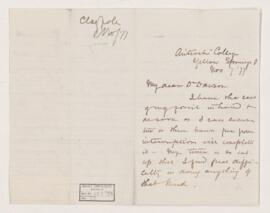 Claypole
Nov/77
Antioch College
Yellow Springs O
Nov 7/77
My dear Dr Dawson
I have the
in hand &
as soon as I can secure
two or three hours free from
interruption will complete
it. My time is so cut
up that I find great diffi-
culty in doing anything of
that kind.